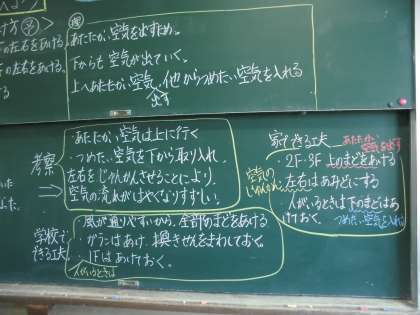 け方
の左右をあける
の左右をあける。
る
理
あたたかい空気を出すため。
下からも空気が出ていく。
上へあたたかい空気、他からつめたい空気を入れる
出す
考察
・あたたかい空気は上に行く
・つめたい空気を下から取り入れ
左右をじゅんかんさせることにより
空気の流れがはやくなりすずしい。
学校で
できる工夫
・風が通りやすいから、全部のまどをあける
・ガラリはあけ、換きせんをまわしておく。
・1Fはあけておく。
人がいるときは
家でできる工夫
あたたかい
空気を出す
・2F・3F 上のまどをあける
空気の
じゅんかん
・左右はあみどにする
・人がいるときは下のまどはあ
けておく。
つめたい空気を入れる